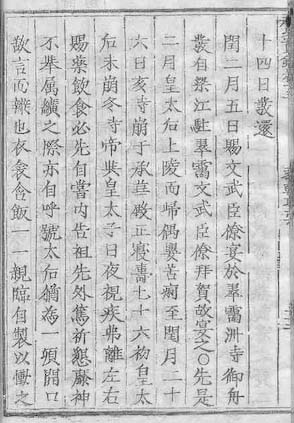 十四日發還
閏二月五日賜文武臣僚宴於翠靄洲寺御舟
發自祭江駐翠靄文武臣僚拜賀故宴之○先是
二月皇太后上陵而歸偶嬰苦痢至閏月二十
六日亥寺崩于承華殿正寢壽七十六初皇太
后未崩冬寺帝與皇太子日夜視疾弗離左右
賜藥飲食必先自嘗內告祖先外篤祈懇禱神
不幸屬纊之際亦自呼號太后猶為一頃開口
故言而辭也衣衾含飯一一親臨自製以慟之